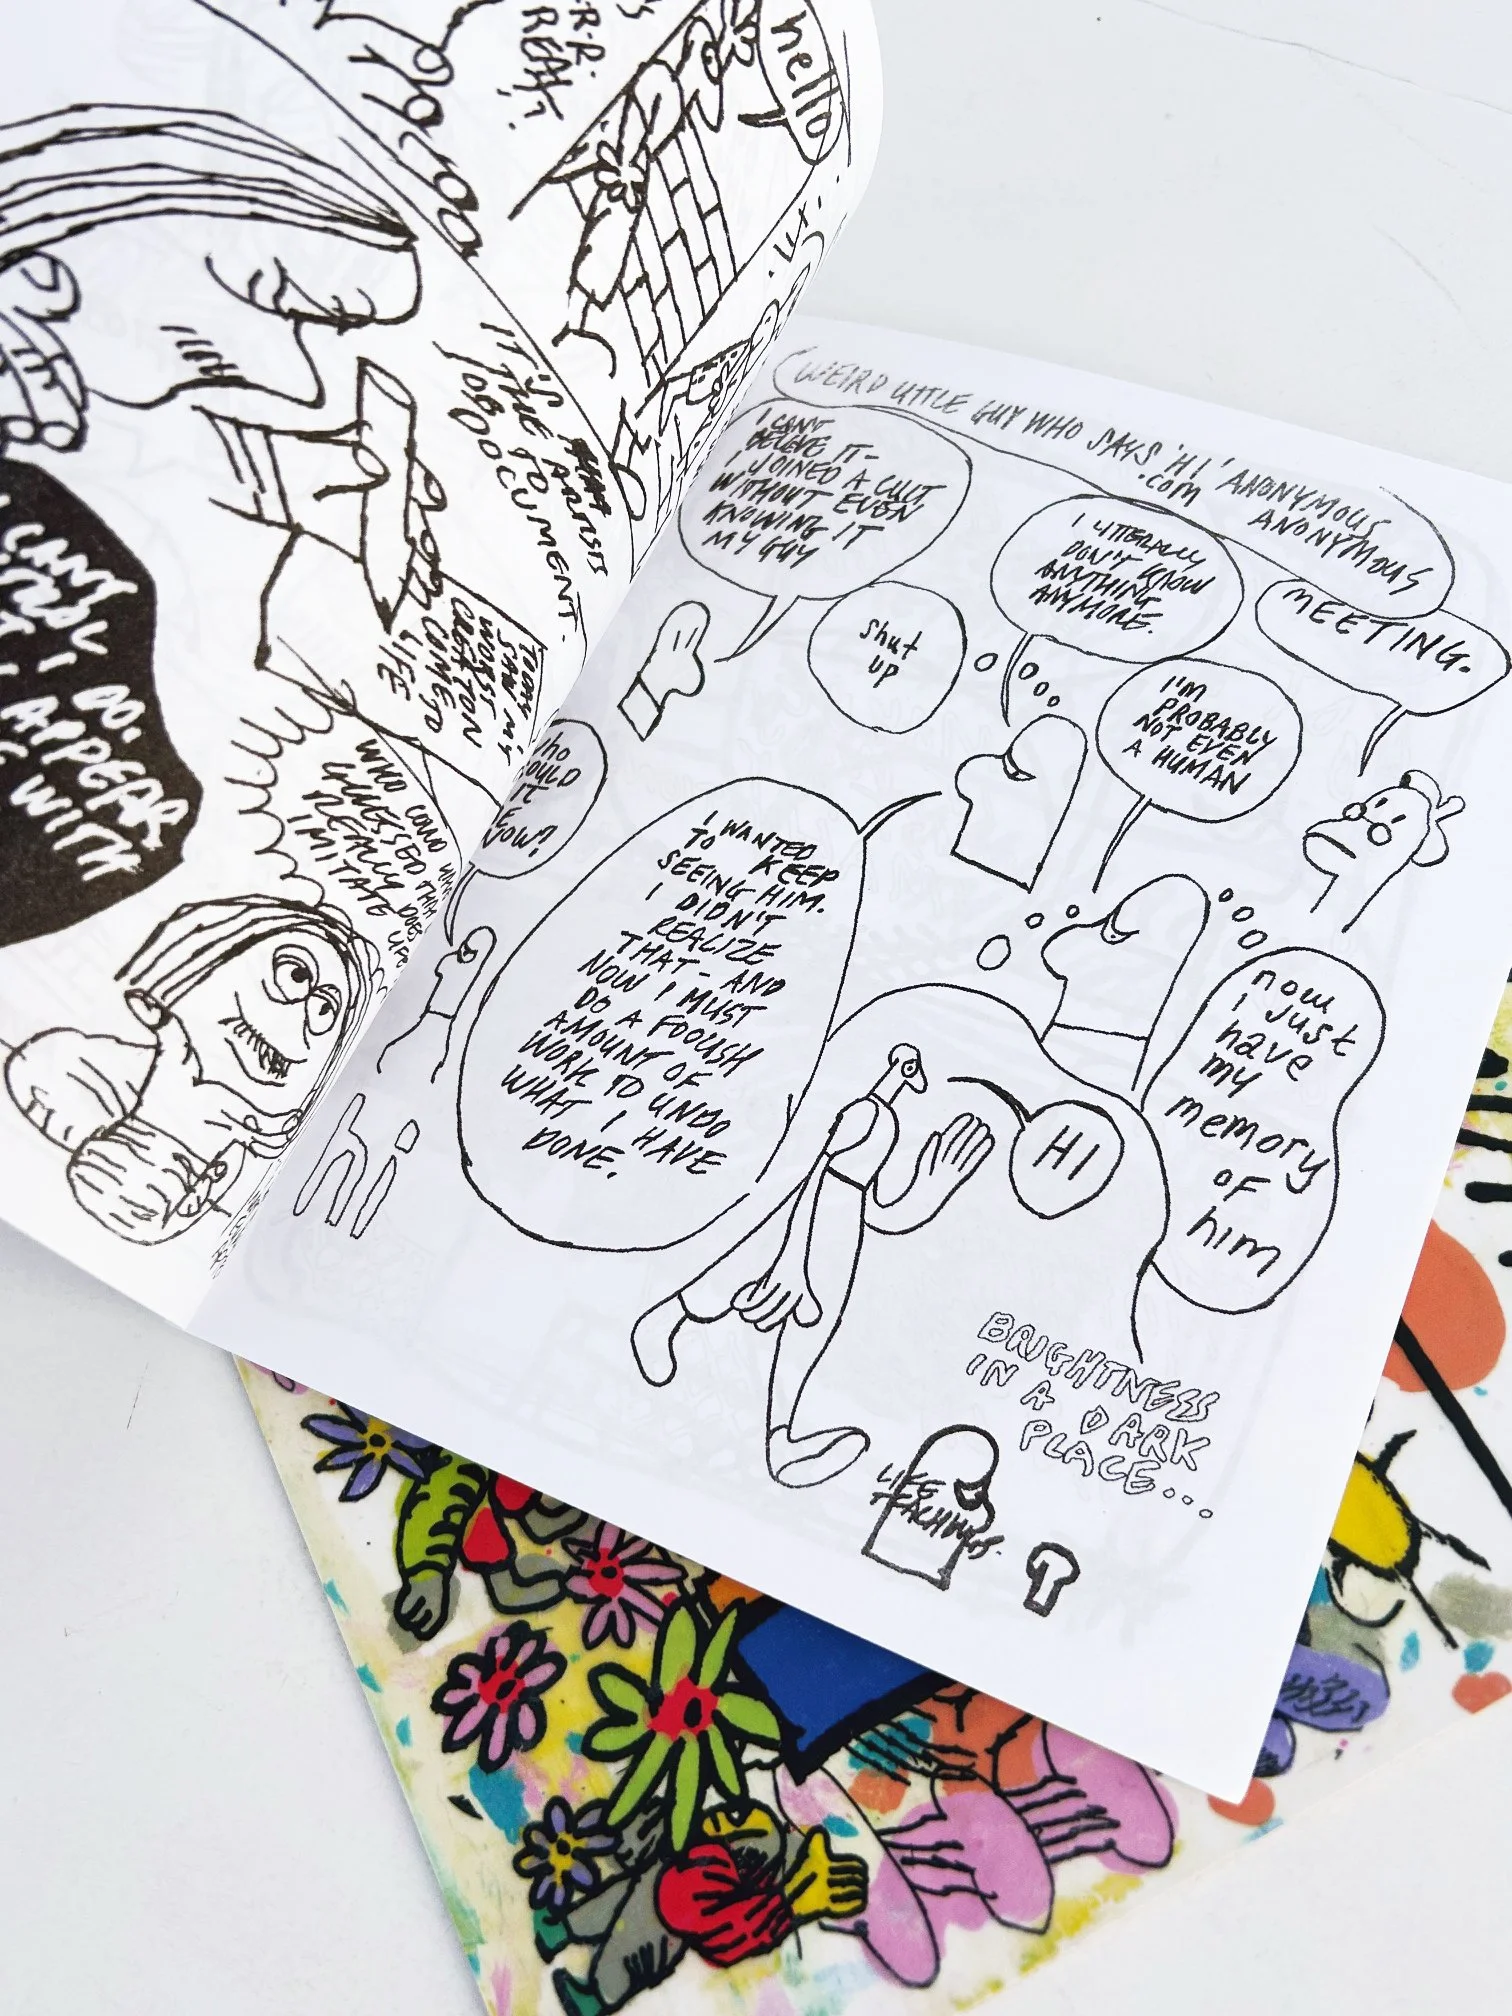 R-R-
REAL!!
hello
IT'S
THE ARTISTS
JOB TO
DOCUMENT.
TODAY I
SAW MY
WORST
CREATION
COME TO
LIFE
I DO.
I APPEAR
WITH
WHO COULD HAVE
GUESSED THIS
REALLY DOES
IMITATE LIFE
WEIRD LITTLE GUY WHO SAYS 'HI' ANONYMOUS
.COM ANONYMOUS
MEETING.
I CAN'T
BELIEVE IT-
I JOINED A CULT
WITHOUT EVEN
KNOWING IT
MY GUY
Shut
UP
I LITTERALLY
DON'T KNOW
ANYTHING
ANYMORE.
I'M
PROBABLY
NOT EVEN
A HUMAN
I WANTED
TO KEEP
SEEING HIM.
I DIDN'T
REALIZE
THAT- AND
NOW I MUST
DO A FOOLISH
AMOUNT OF
WORK TO UNDO
WHAT I HAVE
DONE.
now
I just
have
my
memory
OF
him
HI
hi
BRIGHTNESS
IN A DARK
PLACE...
LIFE
TEACHINGS.